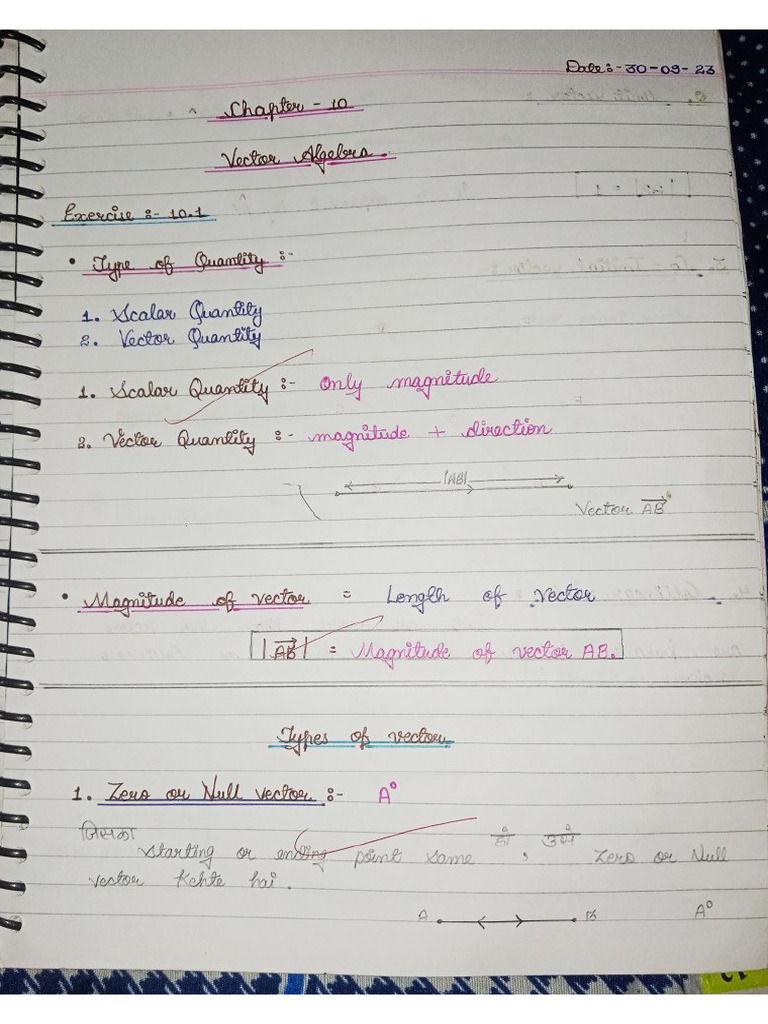 Date:- 30-09-23
Chapter - 10
Vector Algebra
Exercise :- 10.1
• Type of Quantity :-
1. Scalar Quantity
2. Vector Quantity
1. Scalar Quantity :- Only magnitude
2. Vector Quantity :- magnitude + direction
|AB|
Vector AB
• Magnitude of vector = Length of vector
|AB| = Magnitude of vector AB.
Types of vector
1. Zero or Null vector :- A°
जिसका starting or ending point same हो, उसे Zero or Null
vector Kehte hai.
A B A°